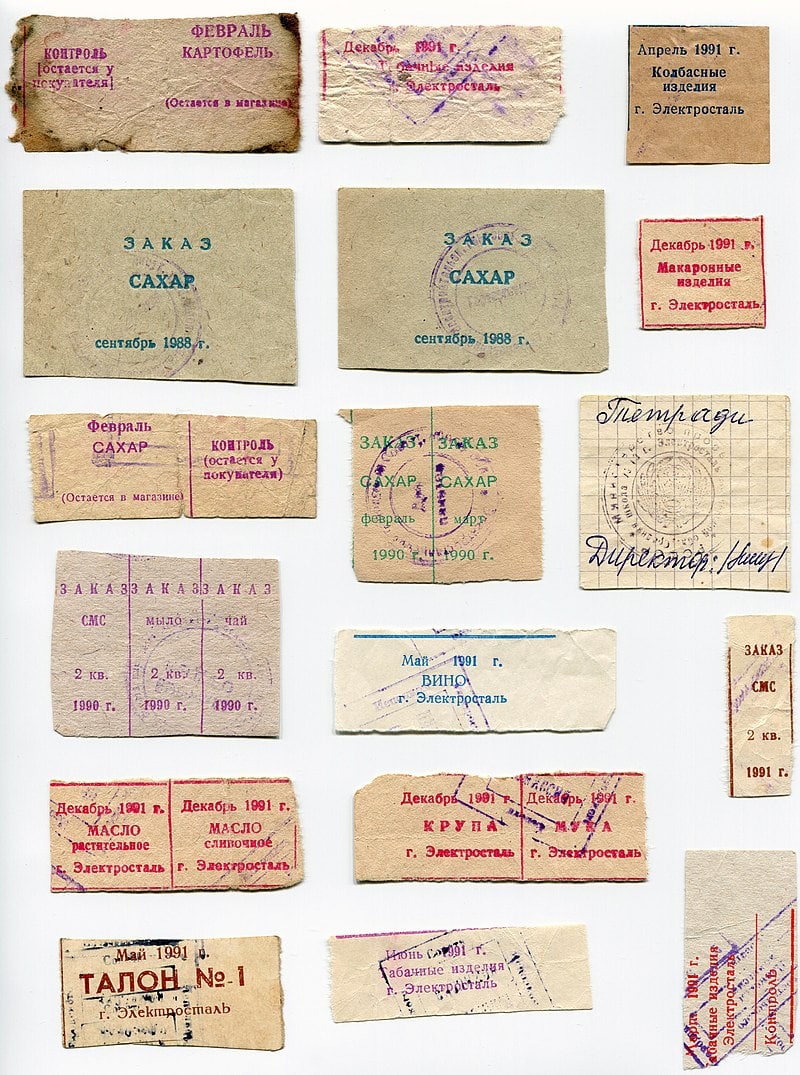 КОНТРОЛЬ
(остается у
покупателя)
ФЕВРАЛЬ
КАРТОФЕЛЬ
(Остается в магазине)
Декабрь 1991 г.
Табачные изделия
г. Электросталь
Апрель 1991 г.
Колбасные
изделия
г. Электросталь
ЗАКАЗ
САХАР
сентябрь 1988 г.
ЗАКАЗ
САХАР
сентябрь 1988 г.
Декабрь 1991 г.
Макаронные
изделия
г. Электросталь
Февраль
САХАР
(Остается в магазине)
КОНТРОЛЬ
(остается у
покупателя)
ЗАКАЗ
САХАР
февраль
1990 г.
ЗАКАЗ
САХАР
март
1990 г.
Тетради
Директор:
ЗАКАЗ
СМС
2 кв.
1990 г.
ЗАКАЗ
мыло
2 кв.
1990 г.
ЗАКАЗ
чай
2 кв.
1990 г.
Май 1991 г.
ВИНО
г. Электросталь
ЗАКАЗ
СМС
2 кв.
1991 г.
Декабрь 1991 г.
МАСЛО
растительное
г. Электросталь
Декабрь 1991 г.
МАСЛО
сливочное
г. Электросталь
Декабрь 1991 г.
КРУПА
г. Электросталь
Декабрь 1991 г.
МУКА
г. Электросталь
Май 1991 г.
ТАЛОН № 1
г. Электросталь
Июнь 1991 г.
Табачные изделия
г. Электросталь
1991 г.
изделия
Электросталь
Контроль